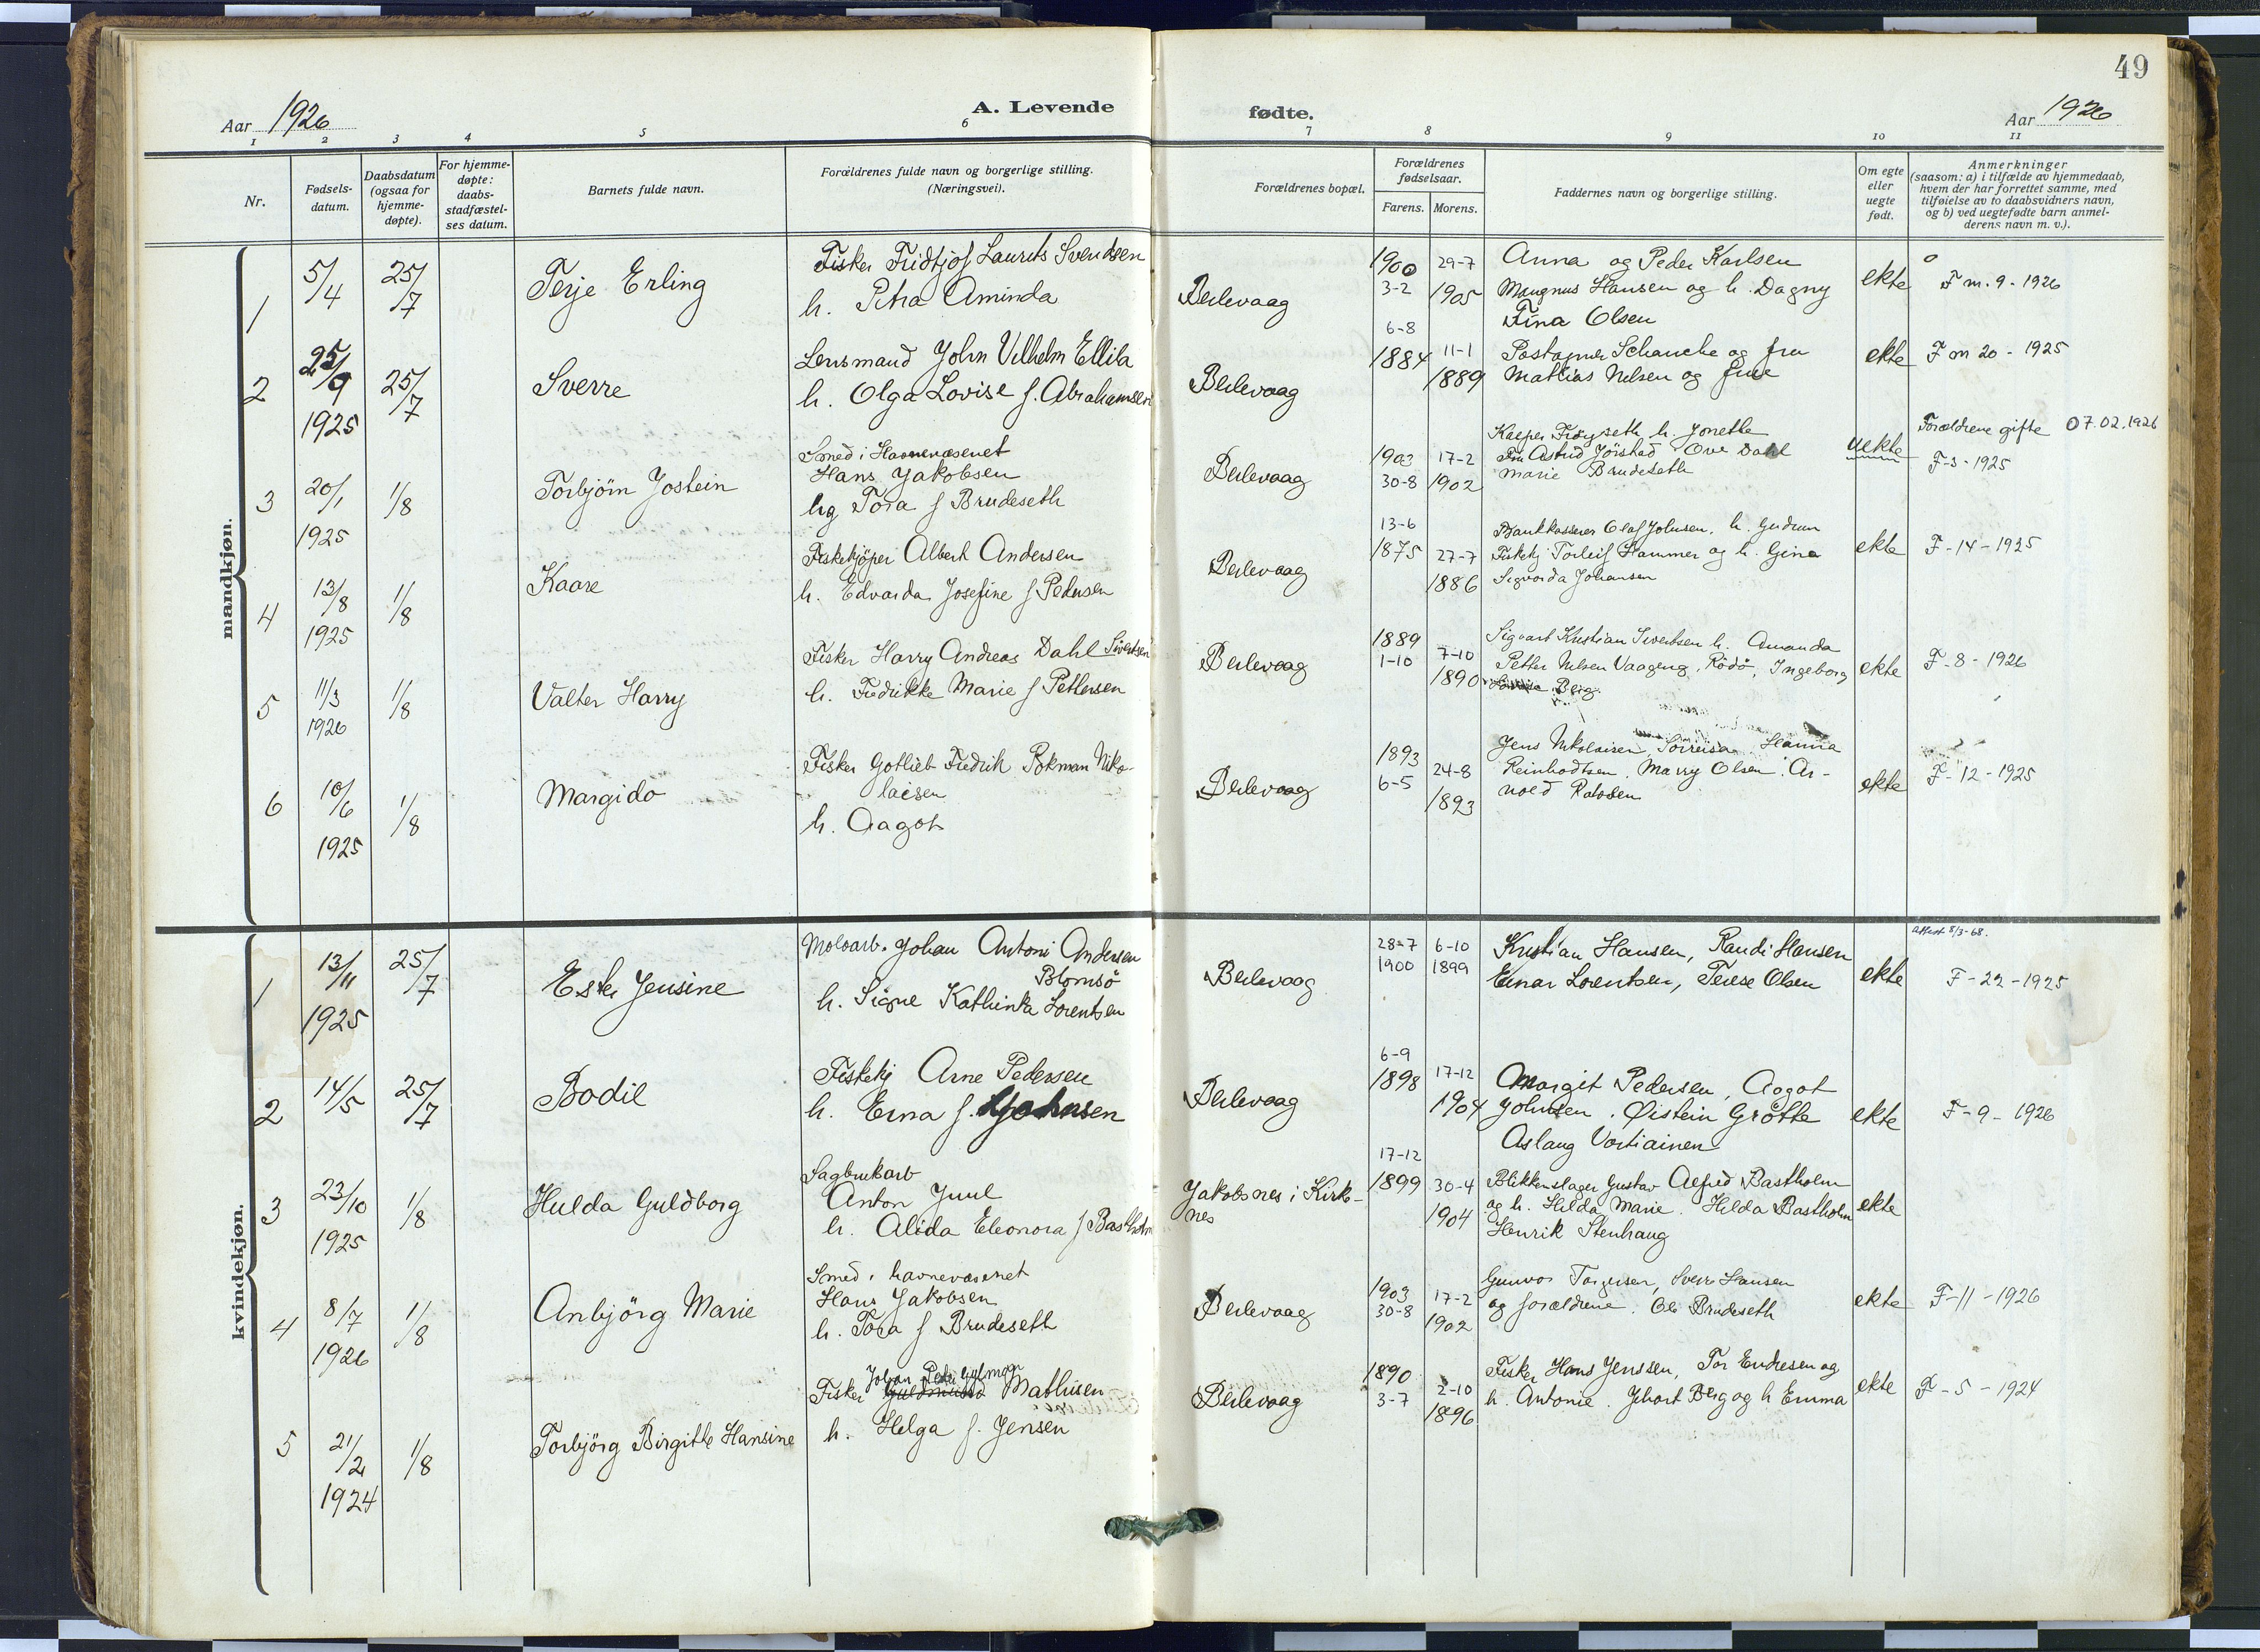 49
Aar 1926
A. Levende
fødte.
Aar 1926
1 2 3 4 5 6 7 8 9 10 11
Nr.
Fødsels-
datum.
Daabsdatum
(ogsaa for
hjemme-
døpte).
For hjemme-
døpte:
daabs-
stadfæstel-
ses datum.
Barnets fulde navn.
Forældrenes fulde navn og borgerlige stilling.
(Næringsvei).
Forældrenes bopæl.
Forældrenes
fødselsaar.
Farens. Morens.
Faddernes navn og borgerlige stilling.
Om egte
eller
uegte
født.
Anmerkninger
(saasom: a) i tilfælde av hjemmedaab,
hvem der har forrettet samme, med
tilføielse av to daabsvidners navn,
og b) ved uegtefødte barn anmel-
derens navn m. v.).
mandkjøn.
1
5/4
25/7
Terje Erling
Fisker Fridtjof Laurits Svendsen
h. Petra Aminda
Berlevaag
1900
3-2
29-7
1905
Anna og Peder Karlsen
Mangnus Hansen og h. Dagny
Tina Olsen
ekte
F m. 9 - 1926
2
25/9
1925
25/7
Sverre
Lensmand John Vilhelm Ellila
h. Olga Lovise f. Abrahamsen
Berlevaag
6-8
1884
11-1
1889
Postopner Schanche og fru
Mathias Nilsen og frue
ekte
F m 20 - 1925
3
20/1
1925
1/8
Torbjörn Jostein
Smed i Havnevæsenet
Hans Jakobsen
hg Tora f Brudeseth
Berlevaag
1903
30-8
17-2
1902
Kasper Fröyseth h. Jonette
Fru Astrid Jörstad Ove Dahl
Marie Brudeseth
uekte
Forældrene gifte 07.02.1926
F-3-1925
4
13/8
1925
1/8
Kaare
Fiskekjöper Albert Andersen
h. Edvarda Josefine f Pedersen
Berlevaag
13-6
1875
27-7
1886
Bankkasserer Olaf Johnsen. h. Gudrun
Fiskekj Torleif Hammer og h. Gina
Sigvarda Johansen
ekte
F-14-1925
5
11/3
1926
1/8
Valter Harry
Fisker Harry Andreas Dahl Sivertsen
h. Fredrikke Marie f Pettersen
Berlevaag
1889
1-10
7-10
1890
Sigvart Kristian Sivertsen h. Amanda
Petter Nilsen Vaageng, Rödö, Ingeborg
Berg
ekte
F-8-1926
6
10/6
1925
1/8
Margido
Fisker Gotlieb Fredrik Bokman Niko-
laisen
h. Aagot
Berlevaag
1893
6-5
24-8
1893
Jens Nikolaisen, Sörreisa Hanna
Reinhodtsen. Marry Olsen. Ar-
nold
ekte
F-12-1925
kvindekjøn.
1
13/11
1925
25/7
Ester Jensine
Moloarb. Johan Antoni Andersen
Blomsö
h. Signe Kathinka Lorentsen
Berlevaag
28-7
1900
6-10
1899
Kristian Hansen, Randi Hansen
Einar Lorentsen, Terese Olsen
ekte
attest 8/3-68.
F-22-1925
2
14/5
25/7
Bodil
Fiskekj Arne Pedersen
h. Erna f. Johnsen
Berlevaag
6-9
1898
17-12
1904
Margit Pedersen, Aagot
Johnsen. Øistein Grötte
Aslaug Vartiainen
ekte
F-9-1926
3
23/10
1925
1/8
Hulda Guldborg
Sagbrukarb
Anton Juul
h. Alida Eleonora f Bastholm
Jakobsnes i Kirke-
nes
17-12
1899
30-4
1904
Blikkenslager Gustav Alfred Bastholm
og h. Hilda Marie. Hilda Bastholm
Henrik Stenhaug
ekte
4
8/7
1926
1/8
Anbjörg Marie
Smed i havnevæsenet
Hans Jakobsen
h. Tora f Brudeseth
Berlevaag
1903
30-8
17-2
1902
Gunvor Torgersen, Sverre Hansen
og forældrene. Ole Brudeseth
ekte
F-11-1926
5
21/2
1924
1/8
Torbjörg Birgitte Hansine
Johan Peder
Fisker Mathisen
h. Helga f. Jensen
Berlevaag
1890
3-7
2-10
1896
Fisker Hans Jenssen, Tor Endresen og
h. Antonie. Jehart Berg og h Emma
ekte
F-5-1924